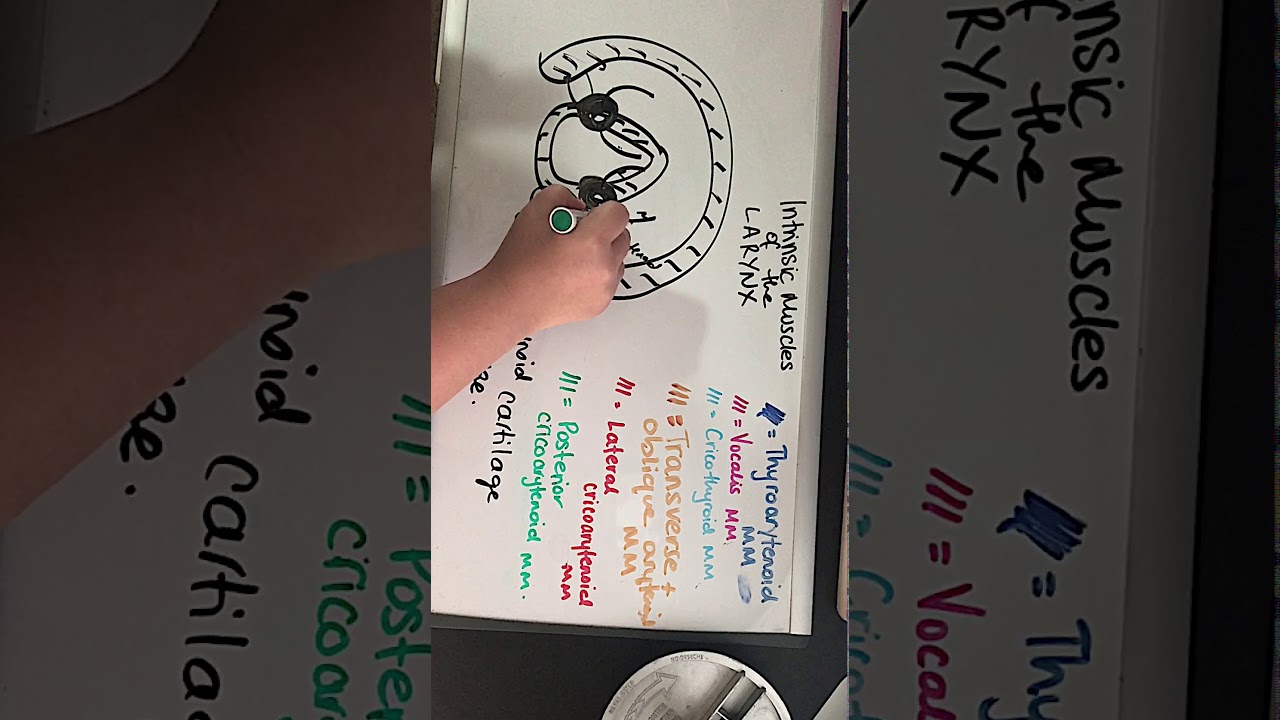 Intrinsic Muscles
of the
LARYNX
= Thyroarytenoid
MM
/// = Vocalis MM.
/// = Cricothyroid MM.
/// = Transverse +
oblique
MM
/// = Lateral
cricoarytenoid
MM
/// = Posterior
cricoarytenoid MM.
cartilage